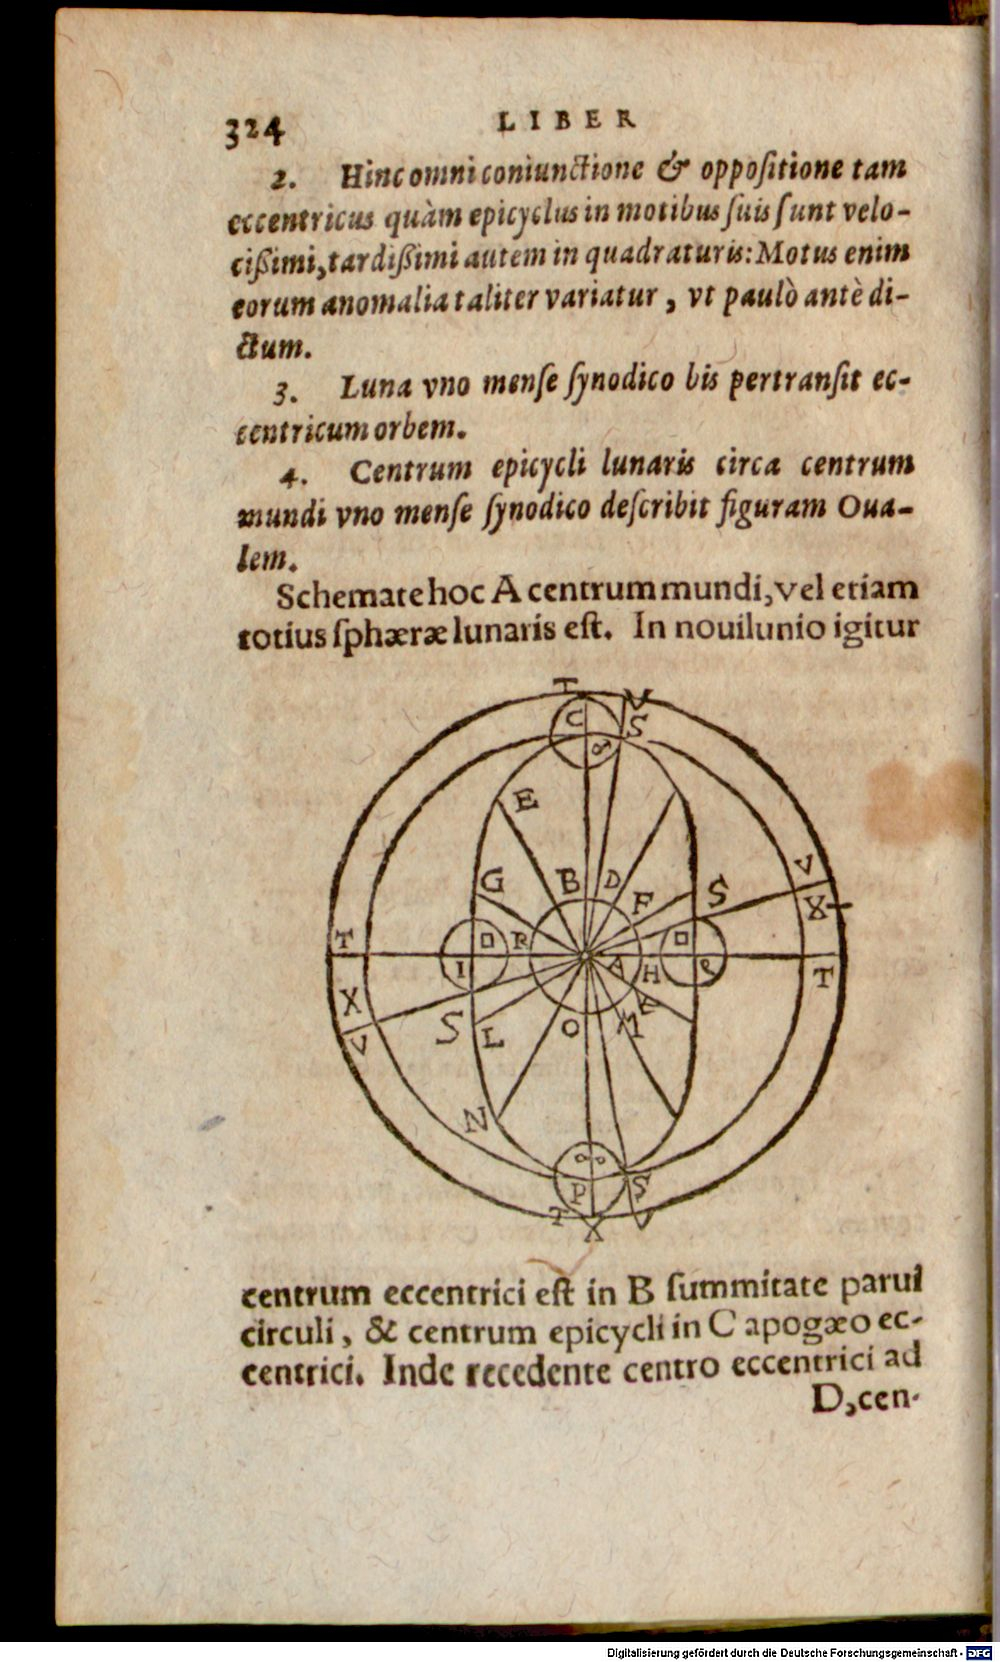 324 LIBER
2. Hinc omni coniunctione & oppoſitione tam
eccentricus quàm epicyclus in motibus ſuis ſunt velo-
cißimi, tardißimi autem in quadraturis: Motus enim
eorum anomalia taliter variatur, vt paulò antè di-
ctum.
3. Luna vno menſe ſynodico bis pertranſit ec-
centricum orbem.
4. Centrum epicycli lunaris circa centrum
mundi vno menſe ſynodico deſcribit figuram Oua-
lem.
Schemate hoc A centrum mundi, vel etiam
totius ſphæræ lunaris eſt. In nouilunio igitur
T V
C S
E
G B D F S V
X
T R A H T
I
X S L O M
V
N
P S
T X V
centrum eccentrici eſt in B ſummitate parui
circuli, & centrum epicycli in C apogæo ec-
centrici. Inde recedente centro eccentrici ad
D, cen-
Digitalisierung gefördert durch die Deutsche Forschungsgemeinschaft - DFG